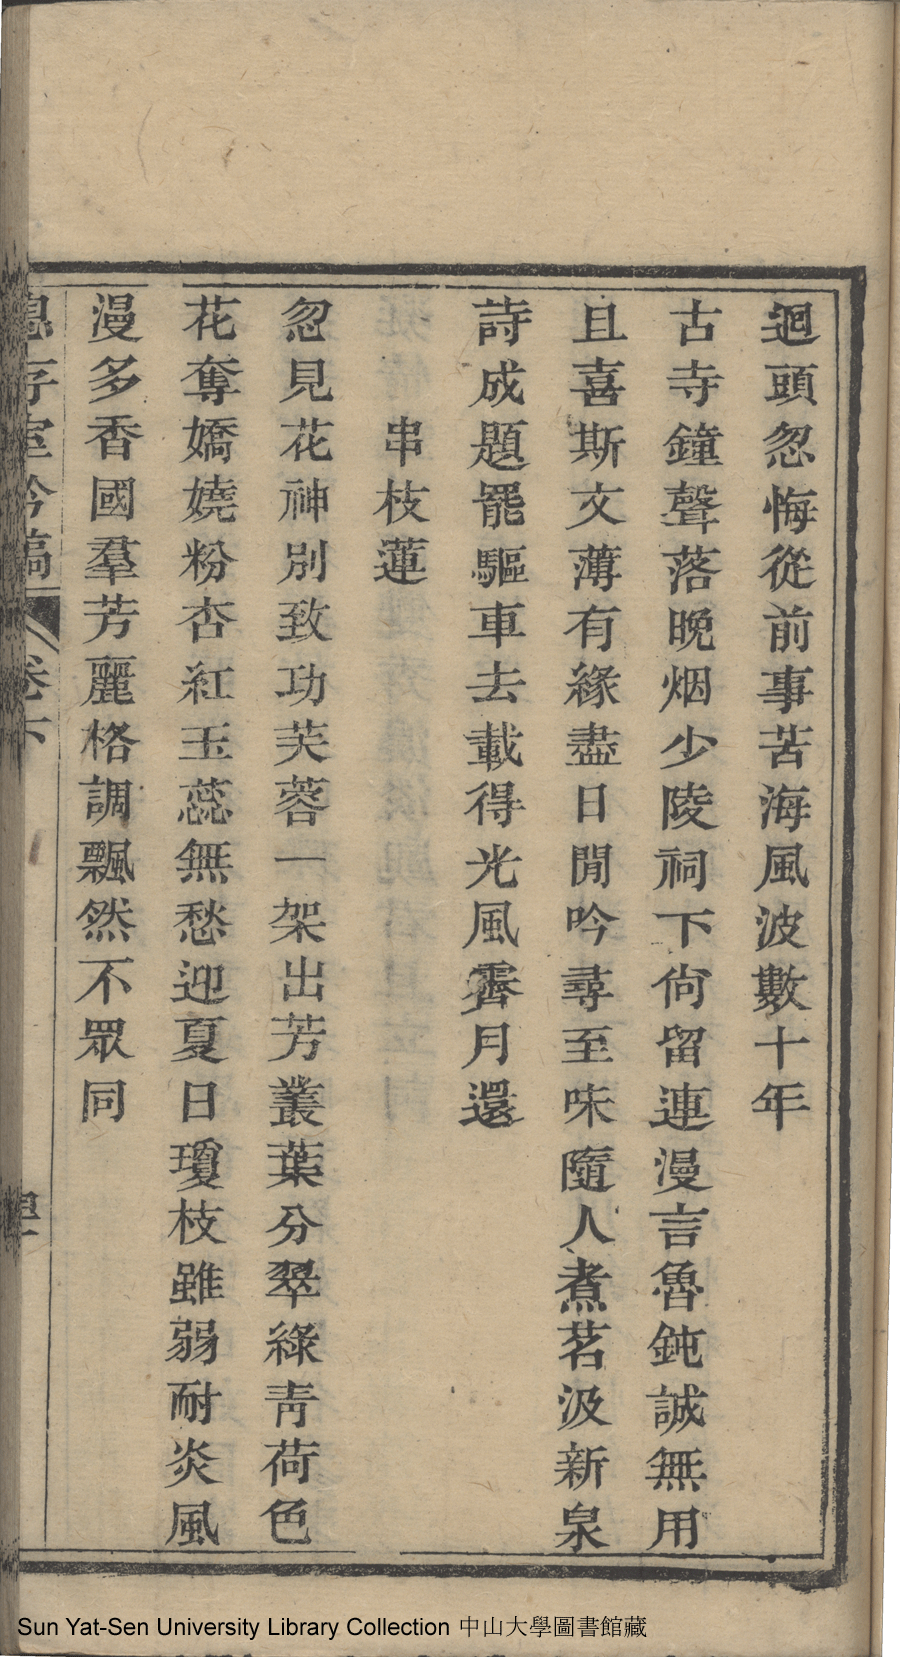 迴頭忽悔從前事苦海風波數十年
古寺鐘聲落晚烟少陵祠下尙留連漫言魯鈍誠無用
且喜斯文薄有緣盡日閒吟尋至味隨人煮茗汲新泉
詩成題罷驅車去載得光風霽月還
串枝蓮
忽見花神別致功芙蓉一架出芳叢葉分翠綠靑荷色
花奪嬌嬈粉杏紅玉蕊無愁迎夏日瓊枝雖弱耐炎風
漫多香國羣芳麗格調飄然不眾同
息存室吟稿 卷下
Sun Yat-Sen University Library Collection 中山大學圖書館藏